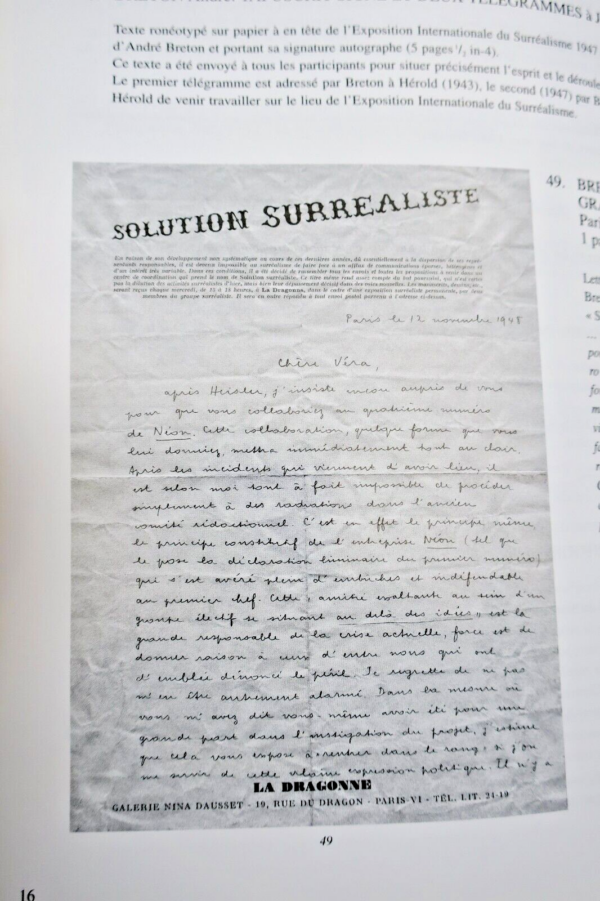 TÉLÉGRAMMES à J
Texte ronéotypé sur papier à en tête de l'Exposition Internationale du Surréalisme 1947
d'André Breton et portant sa signature autographe (5 pages ¹/₂ in-4).
Ce texte a été envoyé à tous les participants pour situer précisément l'esprit et le déroule
Le premier télégramme est adressé par Breton à Hérold (1943), le second (1947) par B
Hérold de venir travailler sur le lieu de l'Exposition Internationale du Surréalisme.
SOLUTION SURREALISTE
membres du groupe surréaliste. Il sera en outre répondu à tout envoi postal parvenu à l'adresse ci-dessous.
Paris le 12 novembre 1948
Chère Véra,
après Heisler, j'insiste encore auprès de vous
pour que vous collaboriez au quatrième numéro
de Néon. Cette collaboration, quelque forme que vous
lui donniez, mettra immédiatement tout au clair.
Après les incidents qui viennent d'avoir lieu, il
est selon moi tout à fait impossible de procéder
simplement à des radiations dans l'ancien
comité rédactionnel. C'est en effet le principe même,
le principe constitutif de l'entreprise Néon (tel que
le pose la déclaration liminaire du premier numéro)
qui s'est avéré plein d'embûches et indéfendable
au premier chef. Cette "amitié exaltante au sein d'un
groupe électif se situant au delà des idées" est la
grande responsable de la crise actuelle, force est de
donner raison à ceux d'entre nous qui ont
d'emblée dénoncé le péril. Je regrette de ne pas
m'en être autrement alarmé. Dans la mesure où
vous m'avez dit vous-même avoir été pour une
grande part dans l'instigation du projet, j'estime
que cela vous expose à "rentrer dans le rang" si j'ose
me servir de cette vilaine expression politique. Il n'y a
LA DRAGONNE
GALERIE NINA DAUSSET - 19, RUE DU DRAGON - PARIS-VI - TÉL. LIT. 24-19
49
49. BRE
GRA
Pari
1 p
Let
Bre
« S
...
po
ro
fo
m
vi
fa
16